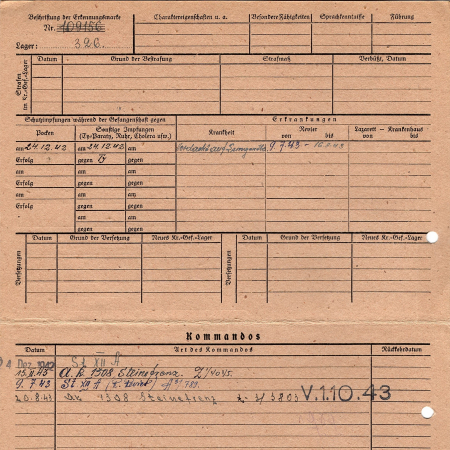 Beschriftung der Erkennungsmarke
Nr. 109156
Lager: 326.
Charaktereigenschaften u. a.
Besondere Fähigkeiten
Sprachkenntnisse
Führung
Strafen im Kr.-Gef.-Lager
Datum
Grund der Bestrafung
Strafmaß
Verbüßt, Datum
Schutzimpfungen während der Gefangenschaft gegen
Erkrankungen
Pocken
Sonstige Impfungen
(Ty-Paraty, Ruhr, Cholera usw.)
Krankheit
Revier
von bis
Lazarett - Krankenhaus
von bis
am 24.12.42
am 24.12.42
am
9.7.43 -
Erfolg
gegen Ty
gegen
am
am
am
Erfolg
gegen
gegen
am
am
am
Erfolg
gegen
gegen
am
am
gegen
gegen
Versetzungen
Datum
Grund der Versetzung
Neues Kr.-Gef.-Lager
Versetzungen
Datum
Grund der Versetzung
Neues Kr.-Gef.-Lager
Kommandos
Datum
Art des Kommandos
Rückkehrdatum
St XII A
A.K 1308 Steinefrenz
9.7.43 St XII A
20.8.43 1308 Steinefrenz
V.1.10.43